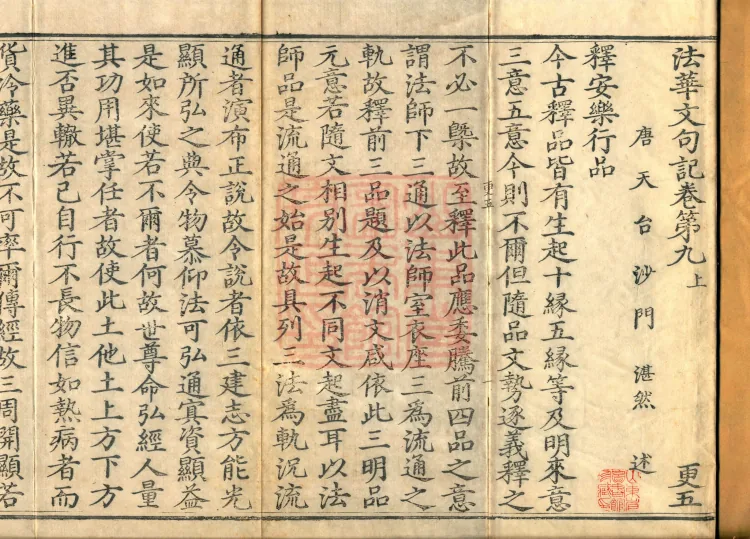 法華文句記卷第九上 更五
唐天台沙門湛然述
釋安樂行品
今古釋品皆有生起十緣五緣等及明來意
三意五意今則不爾但隨品文勢逐義釋之
更五
不必一槩故至釋此品應委騰前四品之意
謂法師下三通以法師室衣座三為流通之
軌故釋前三品題及以消文咸依此三明品
元意若隨文相別生起不同文起盡耳以法
師品是流通之始是故具列三法為軌況流
通者演布正說故令說者依三建志方能光
顯所弘之典令物慕仰法可弘通寘資顯益
是如來使若不爾者何故世尊命弘經人量
其功用堪掌任者故使此土他土上方下方
進否異轍若已自行不長物信如熱病者而
貨冷藥是故不可率爾傳經故三周開顯若